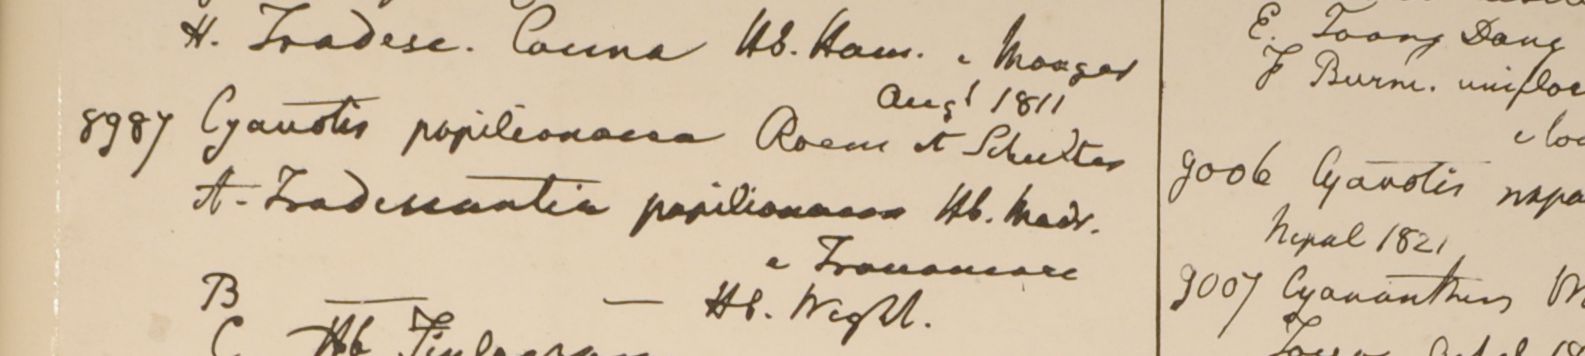 H. Tradesc. Hb. Ham. e Mongar
Augt 1811
8987 Cyanotis papilionacea Roem et Schultes
A - Tradescantia papilionacea Hb. Madr.
e Travancore
B — — Hb. Wight.
C Hb Finlayson
E. Toong Dong
F Burm.
9006 Cyanotis
Nepal 1821
9007 Cyananthus